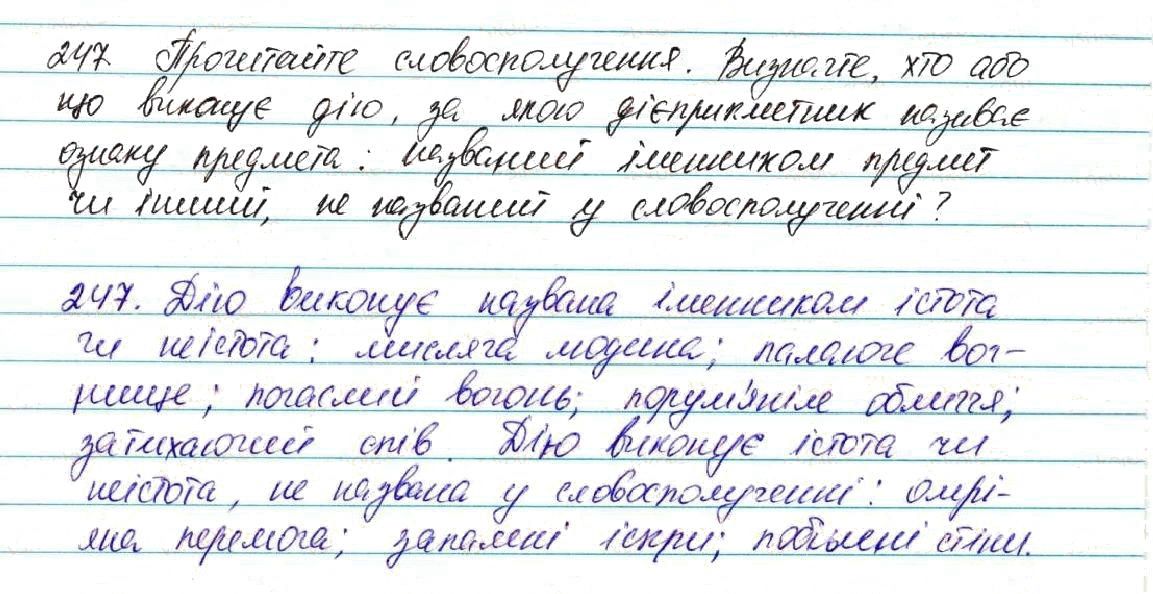 247. Прочитайте словосполучення. Визначте, хто або
що виконує дію, за якою дієприкметник називає
ознаку предмета: названий іменником предмет
чи інший, не названий у словосполученні?
247. Дію виконує названа іменником істота
чи неістота: мисляча людина; палаюче вог-
нище; погаслий вогонь; порум'яніле обличчя;
затихаючий спів. Дію виконує істота чи
неістота, не названа у словосполученні: омрі-
яна перемога; запалені іскри; побілені стіни.